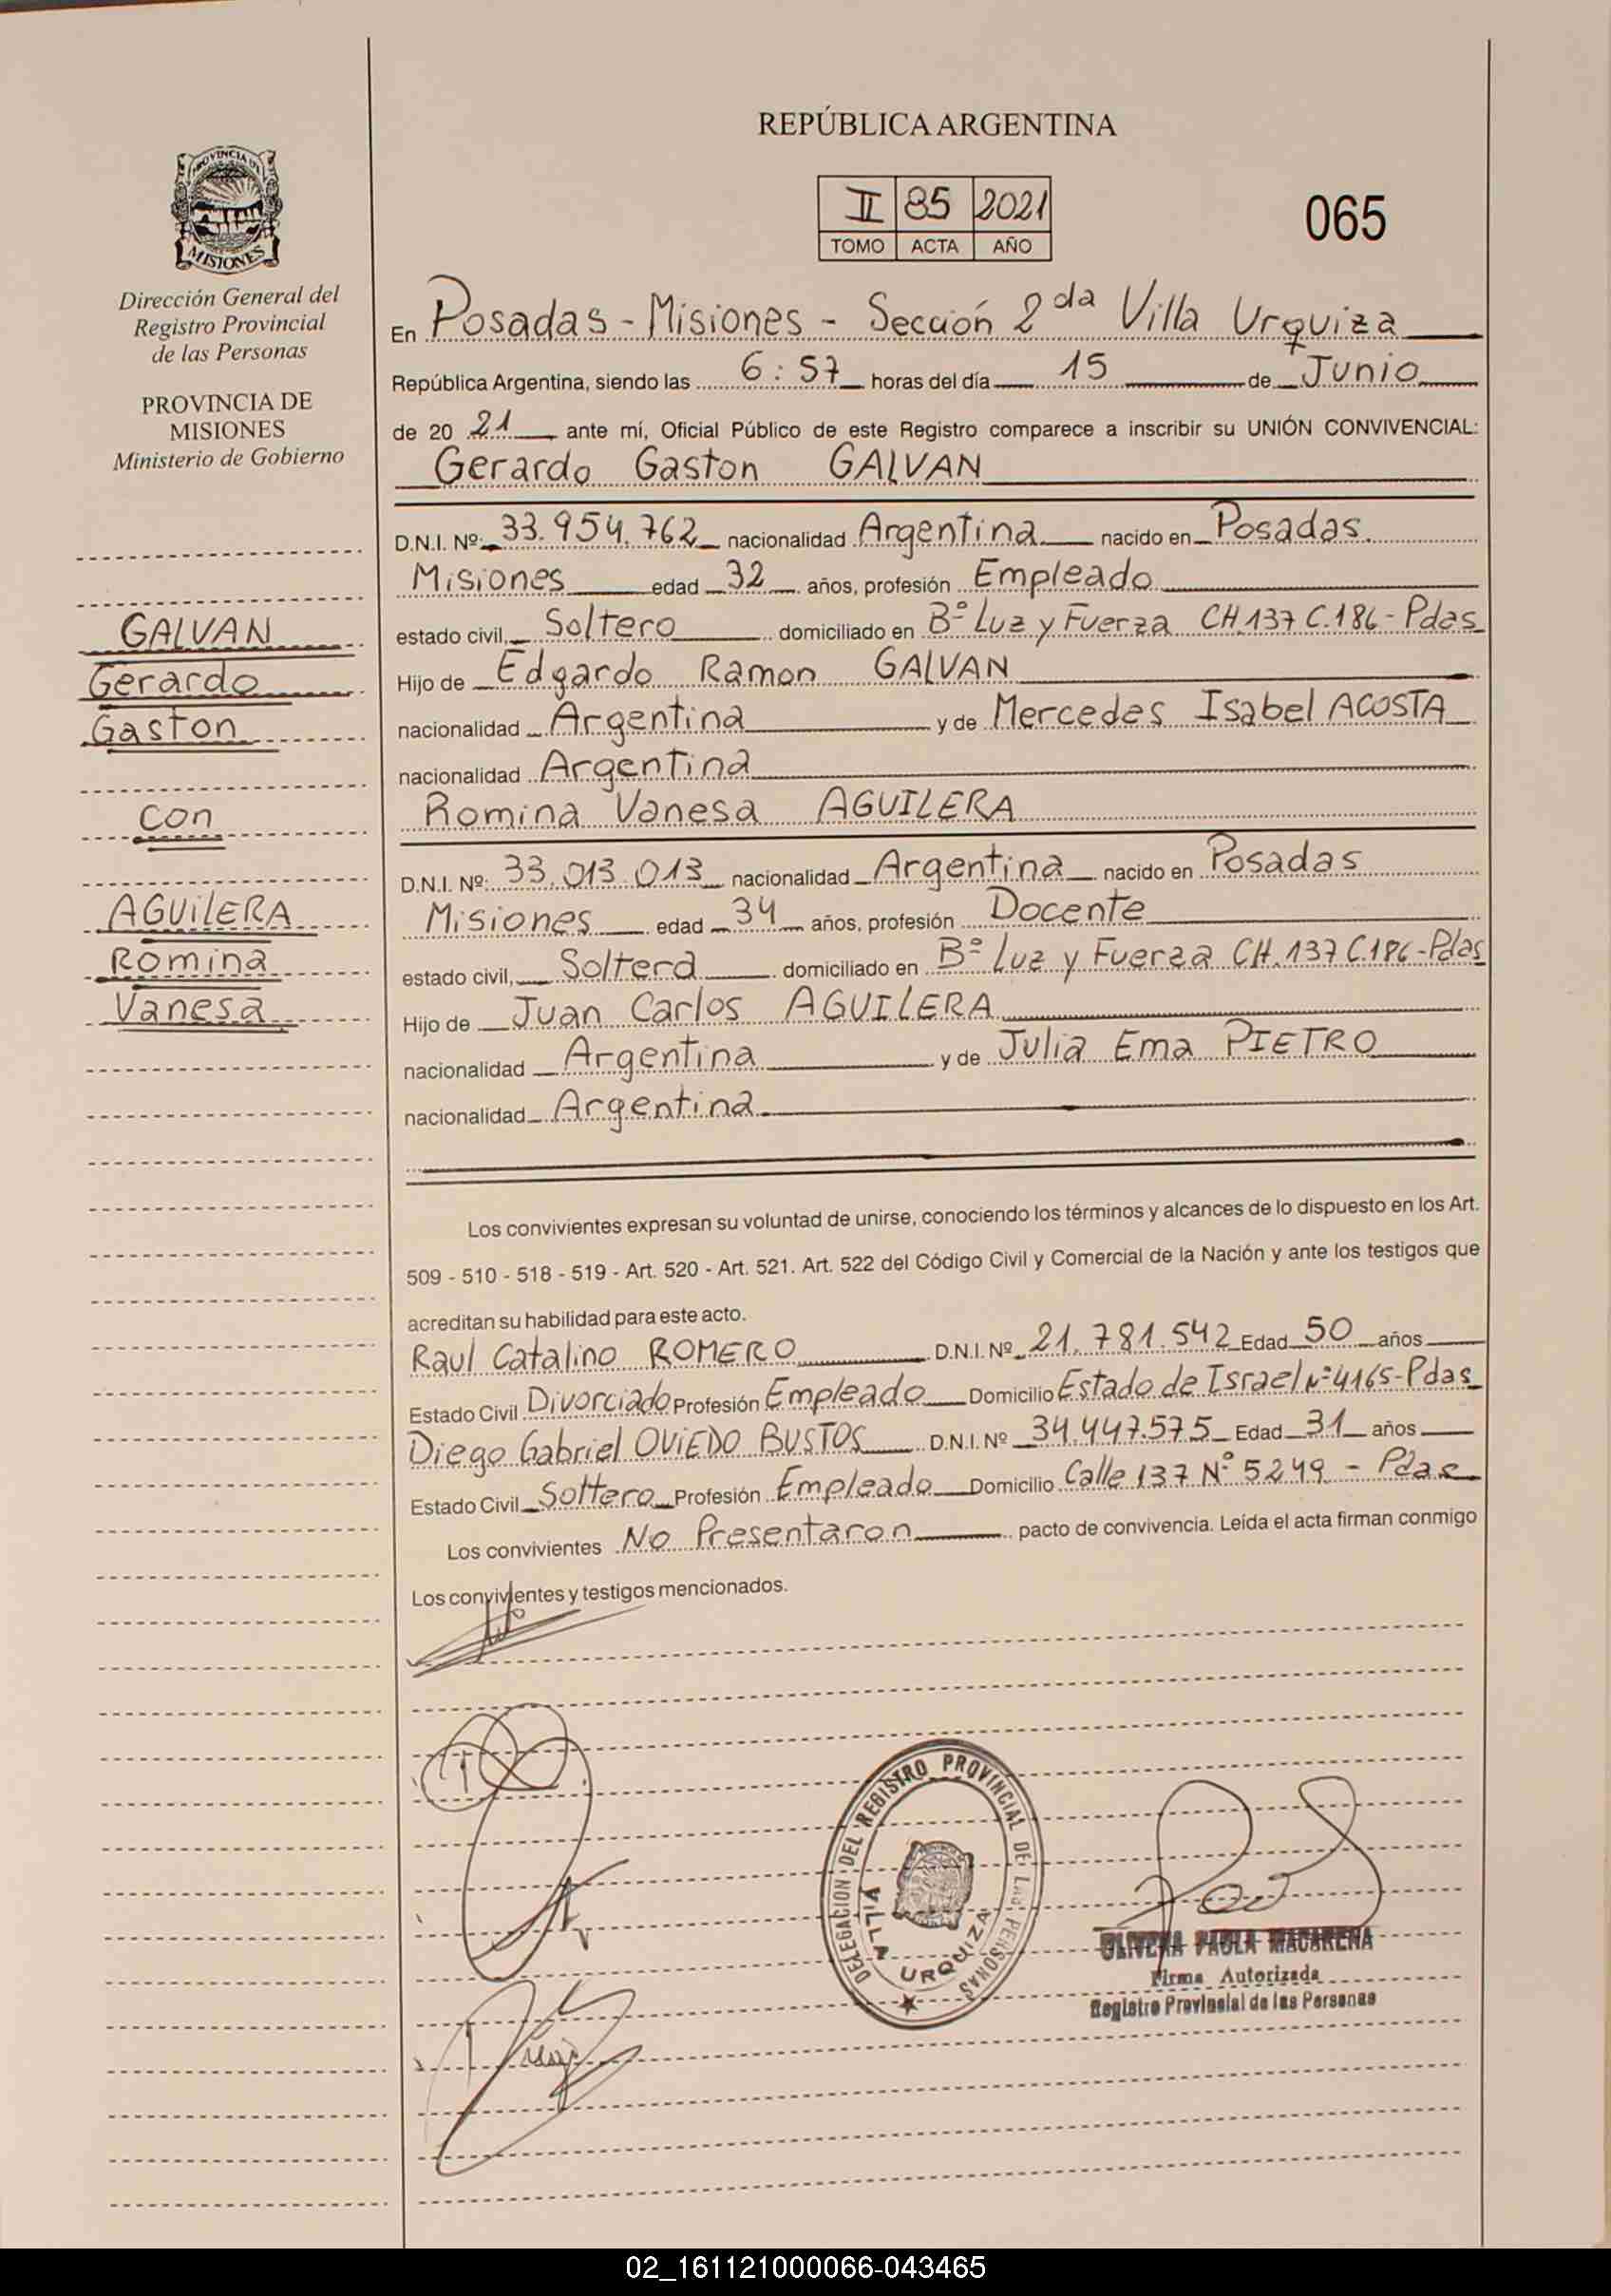 REPÚBLICA ARGENTINA
II 85 2021
TOMO ACTA AÑO
065
PROVINCIA DE
MISIONES
Dirección General del
Registro Provincial
de las Personas
PROVINCIA DE
MISIONES
Ministerio de Gobierno
GALVAN
Gerardo
Gaston
con
AGUILERA
Romina
Vanesa
En Posadas - Misiones - Sección 2da Villa Urquiza
República Argentina, siendo las 6:57 horas del día 15 de Junio
de 20 21 ante mí, Oficial Público de este Registro comparece a inscribir su UNIÓN CONVIVENCIAL:
Gerardo Gaston GALVAN
D.N.I. Nº: 33.954.762 nacionalidad Argentina nacido en Posadas
Misiones edad 32 años, profesión Empleado
estado civil, Soltero domiciliado en Bº Luz y Fuerza CH.137 C.186 - Pdas
Hijo de Edgardo Ramon GALVAN
nacionalidad Argentina y de Mercedes Isabel ACOSTA
nacionalidad Argentina
Romina Vanesa AGUILERA
D.N.I. Nº: 33.013.013 nacionalidad Argentina nacido en Posadas
Misiones edad 34 años, profesión Docente
estado civil, Soltera domiciliado en Bº Luz y Fuerza CH.137 C.186 - Pdas
Hijo de Juan Carlos AGUILERA
nacionalidad Argentina y de Julia Ema PIETRO
nacionalidad Argentina
Los convivientes expresan su voluntad de unirse, conociendo los términos y alcances de lo dispuesto en los Art.
509 - 510 - 518 - 519 - Art. 520 - Art. 521. Art. 522 del Código Civil y Comercial de la Nación y ante los testigos que
acreditan su habilidad para este acto.
Raul Catalino ROMERO D.N.I. Nº 21.781.542 Edad 50 años
Estado Civil Divorciado Profesión Empleado Domicilio Estado de Israel Nº 4165 - Pdas
Diego Gabriel OVIEDO BUSTOS D.N.I. Nº 34.447.575 Edad 31 años
Estado Civil Soltero Profesión Empleado Domicilio Calle 137 Nº 5249 - Pdas
Los convivientes No Presentaron pacto de convivencia. Leída el acta firman conmigo
Los convivientes y testigos mencionados.
DELEGACION DEL REGISTRO PROVINCIAL DE LAS PERSONAS
VILLA URQUIZA
OLIVERA PAOLA MACARENA
Firma Autorizada
Registro Provincial de las Personas
02_161121000066-043465